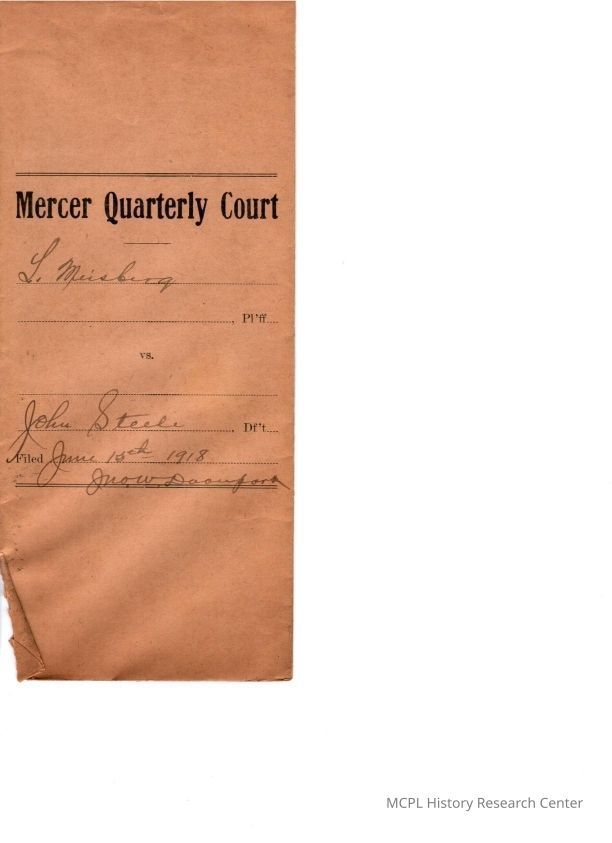 Mercer Quarterly Court
L. Meisberg
, Pl'ff.
vs.
John Steele , Df't.
Filed June 15th 1918
Jno. W. Davenport
MCPL History Research Center